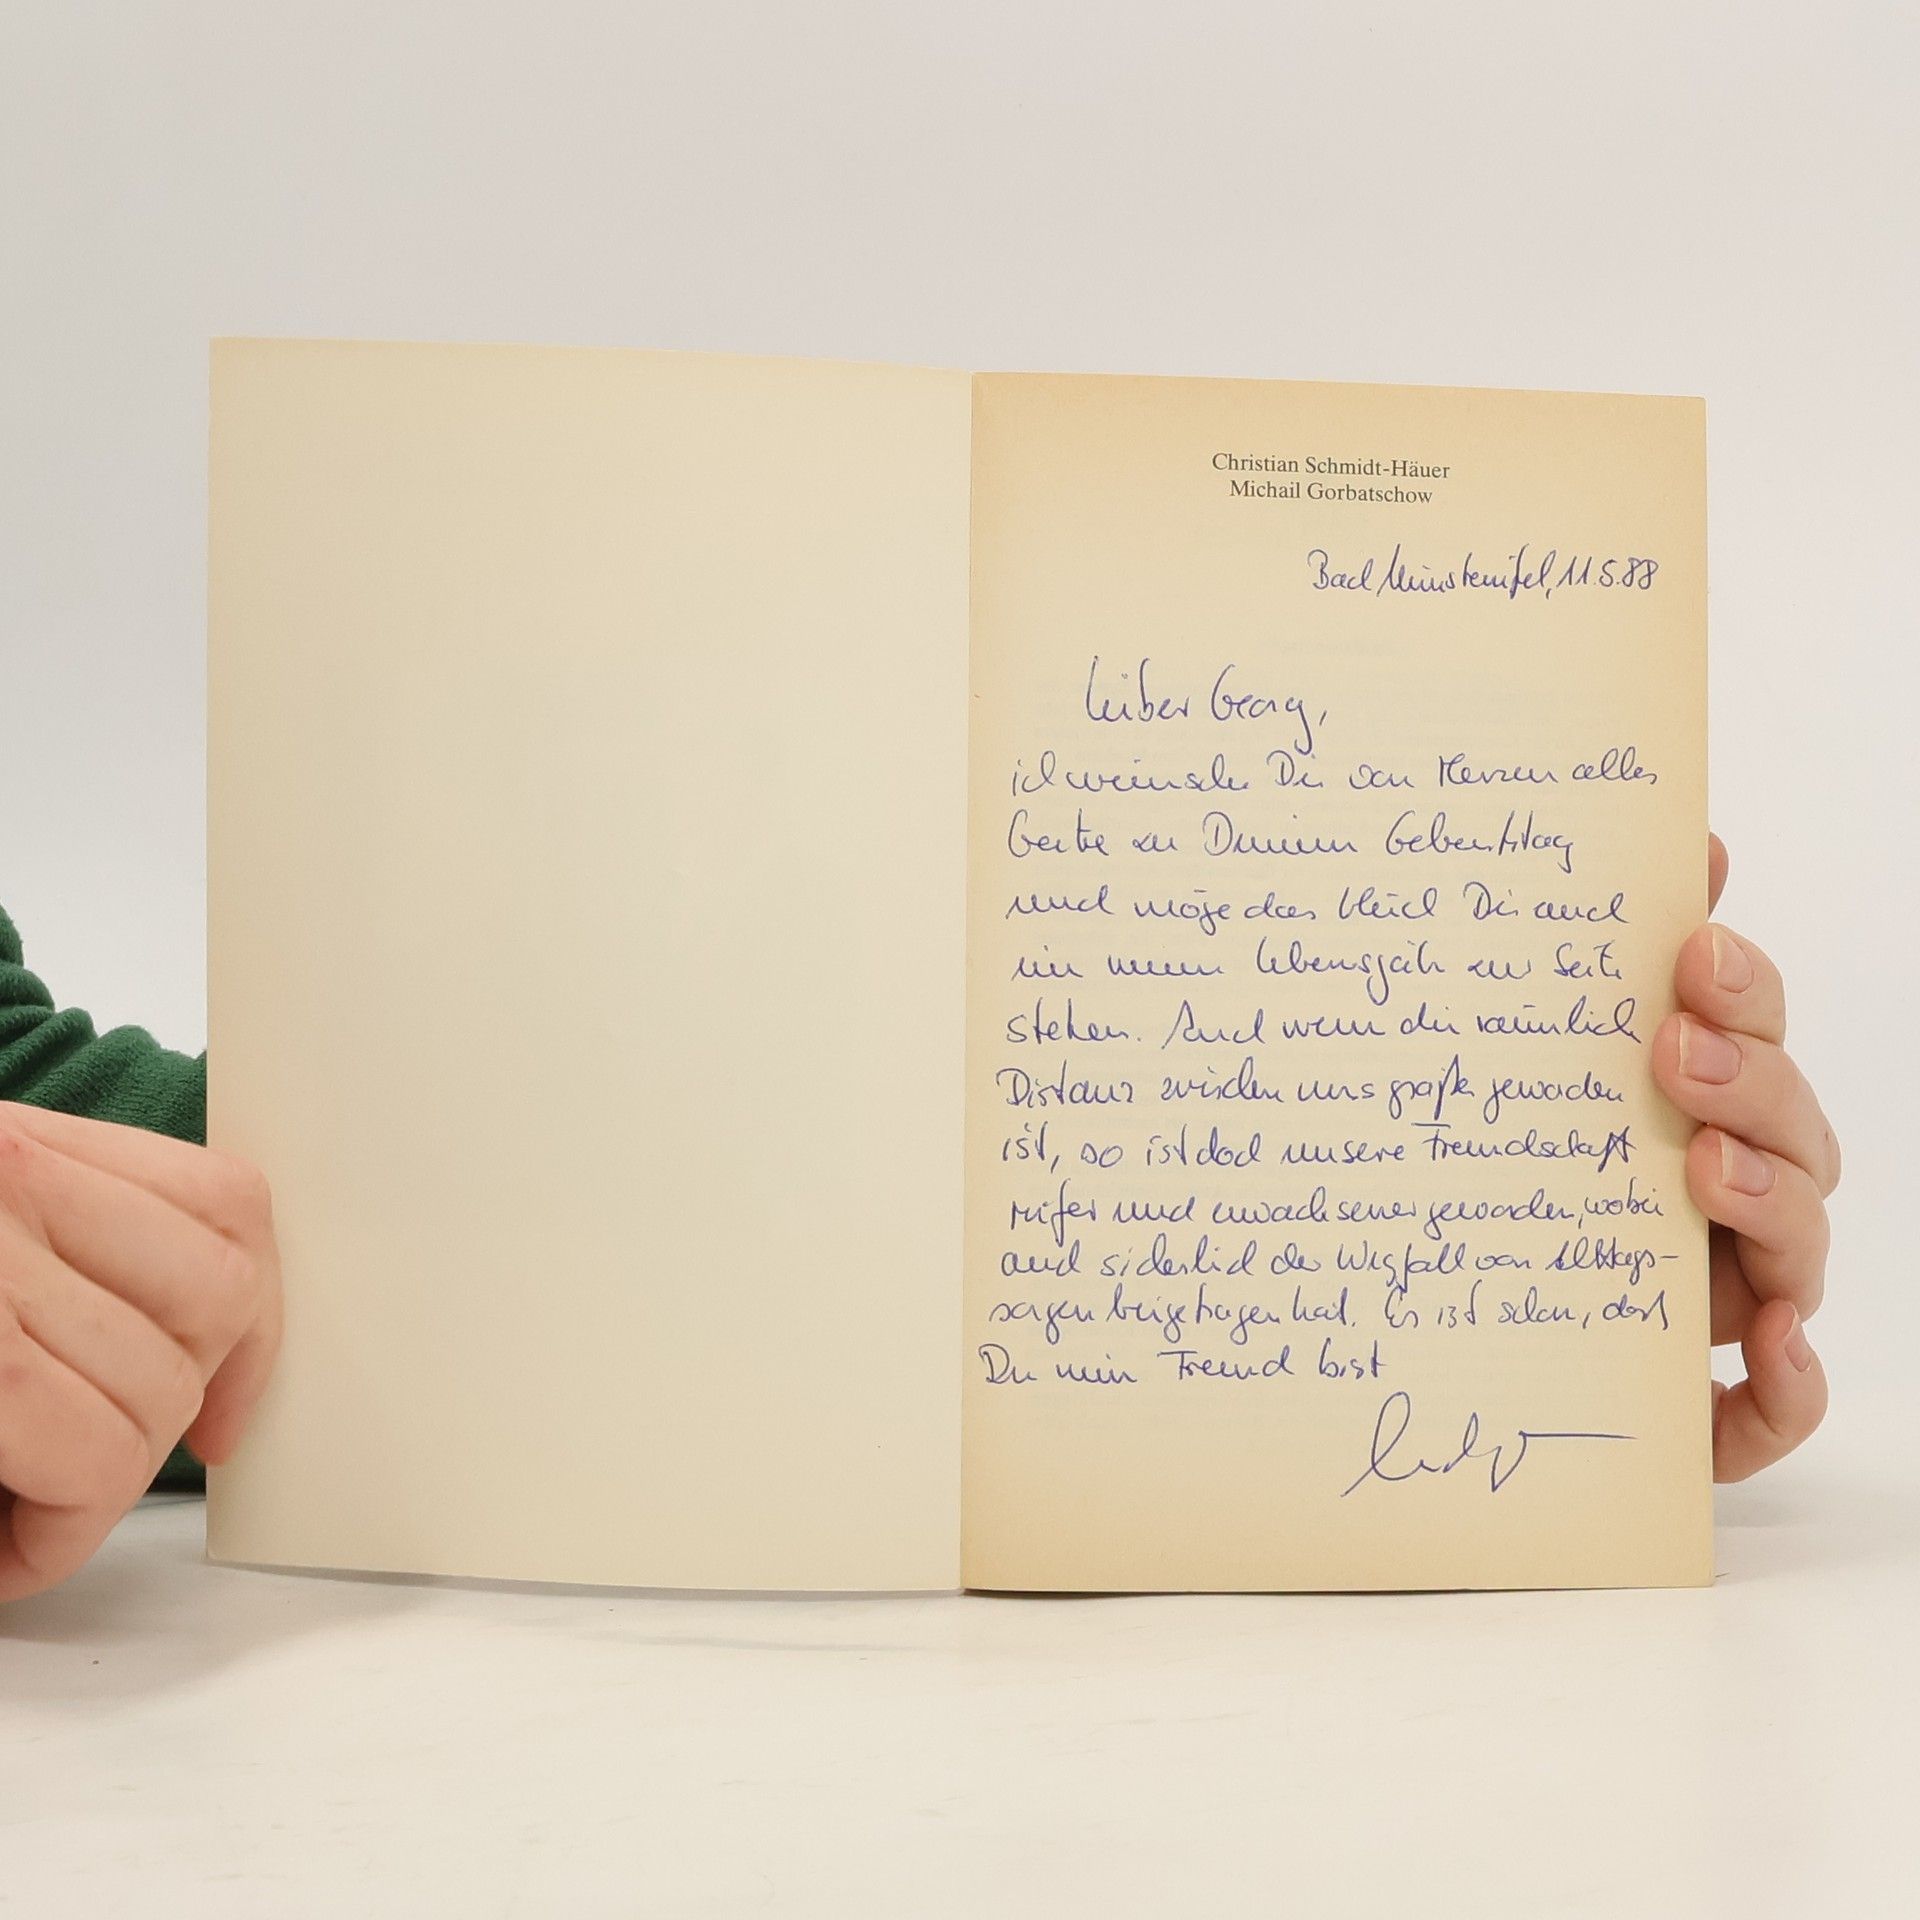 Christian Schmidt-Häuer
Michail Gorbatschow
Bad Münstereifel, 11.5.88
Lieber Georg,
ich wünsche Dir von Herzen alles
Gute zu Deinem Geburtstag
und möge das Glück Dir auch
im neuen Lebensjahr zur Seite
stehen. Auch wenn die räumliche
Distanz zwischen uns größer geworden
ist, so ist doch unsere Freundschaft
reifer und erwachsener geworden, wobei
auch sicherlich der Wegfall von Alltags-
sorgen beigetragen hat. Es ist schön, daß
Du mein Freund bist